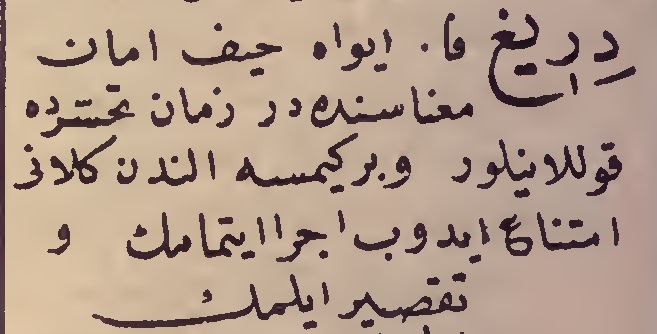 دریغ فا. ایواه حیف امان
معناسنده در زمان تحسّرده
قوللانیلور وبرکیمسه الندن کلانی
امتناع ایدوب اجرا ایتمامك و
تقصیر ایلمك